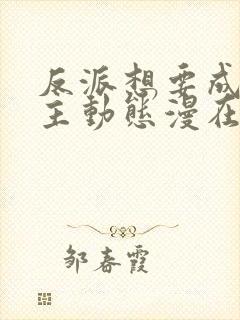 反派想要成
主動態漫在
邹春霞